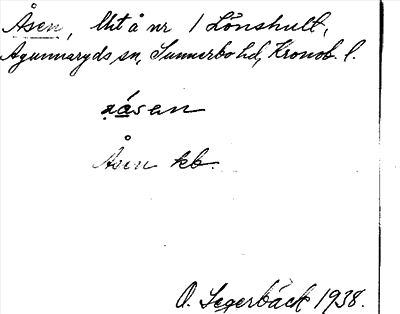 Åsen, lht å nr 1 Lönshult,
Agunnaryds sn, Sunnerbo hd, Kronob. l.
åsen
Åsen kb.
O. Segerbäck 1938.